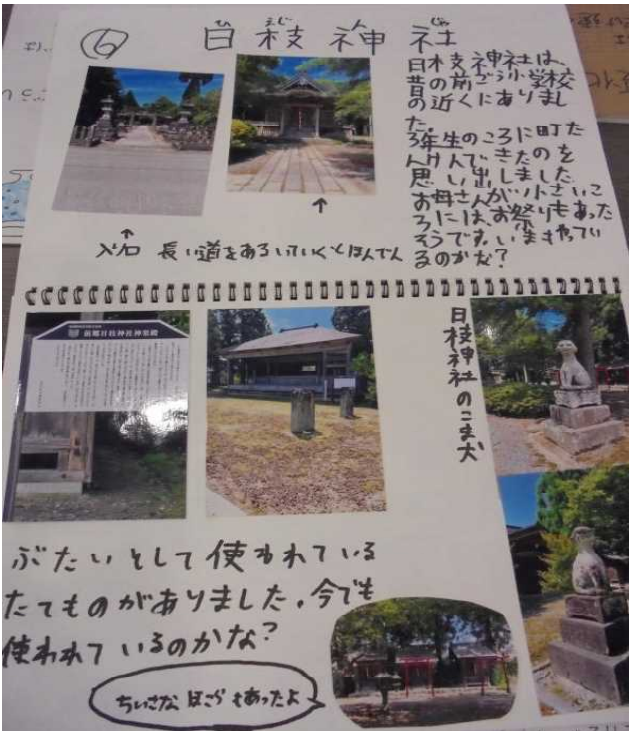 ⑥ 日枝神社
ひ えじ じゃ
日枝神社は、
昔の前ごう小学校
の近くにありまし
た。
3年生のころに町た
んけんできたのを
思い出しました。
お母さんが小さいこ
ろには、お祭りもあった
そうです。いまもやってい
るのかな?
↑
入り口
↑
長い道をあるいていくとほんでん
前郷日枝神社神楽殿
日枝神社のこま犬
ぶたいとして使われている
たてものがありました。今でも
使われているのかな?
ちいさな ほこらもあったよ